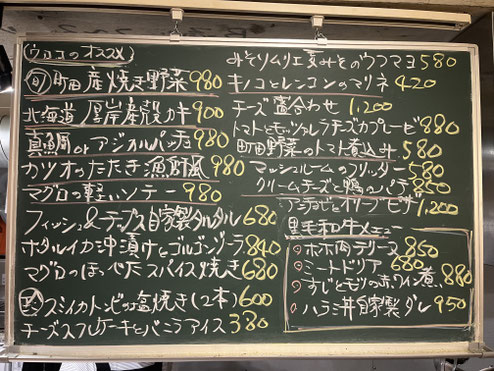 (ウロコのオススメ)
旬 町田産焼き野菜 980
北海道 厚岸産殻カキ 900
真鯛orアジカルパッチョ 980
カツオのたたき漁師風 980
マグロの軽いソテー 980
フィッシュ&チップス自家製タルタル 680
ホタルイカ沖漬けとゴルゴンゾーラ 840
マグロのほっぺたスパイス焼き 680
スルイカトンビの塩焼き(2本) 600
チーズスフレケーキとバニラアイス 380
みそソムリエ麦みそのウフマヨ 580
キノコとレンコンのマリネ 420
チーズ盛合わせ 1,200
トマトとモッツァレラチーズカプレーゼ 880
町田野菜のトマト煮込み 580
マッシュルームのフリッター 580
クリームチーズと鴨のパテ 850
アンチョビとオリーブピザ 1,200
黒毛和牛メニュー
ホホ肉テリーヌ 850
ミートドリア 680
すじともりの赤ワイン煮 880
ハラミ丼自家製ダレ 950